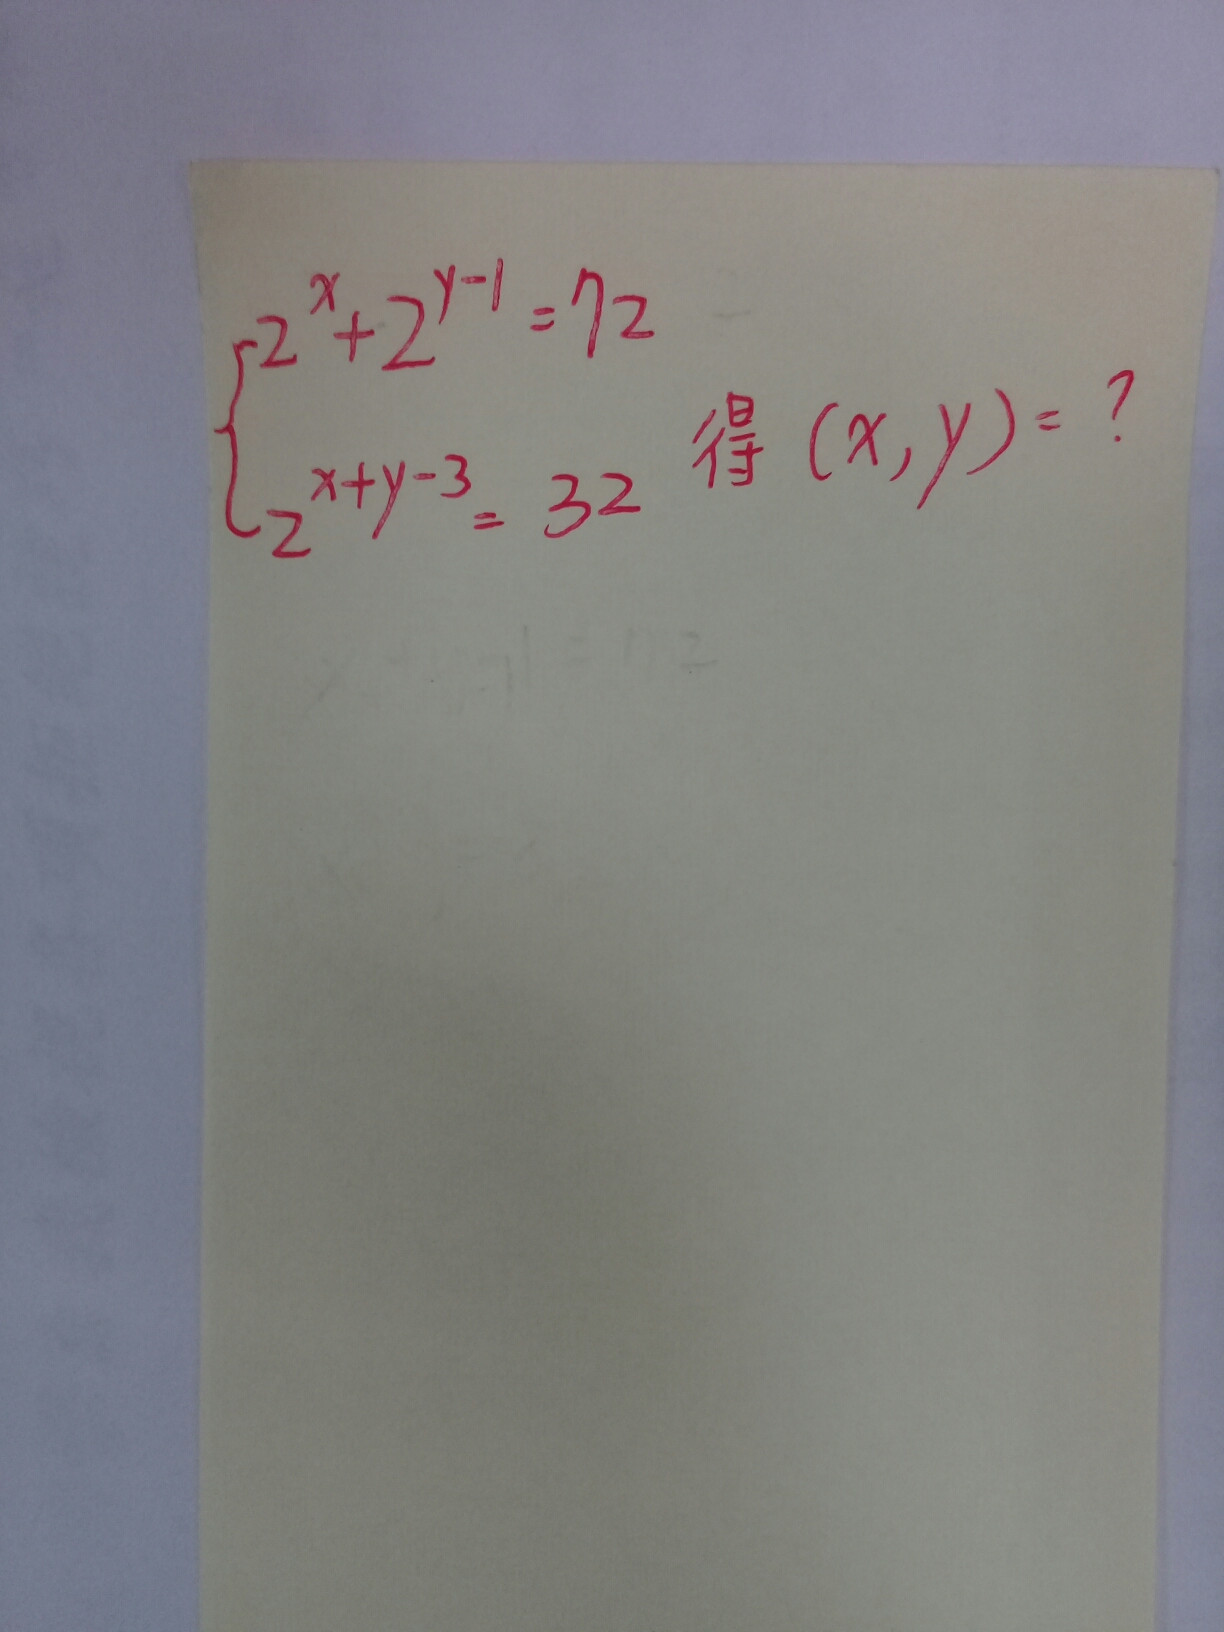 {2^x+2^{y-1}=72
2^{x+y-3}=32 得(x,y)=?